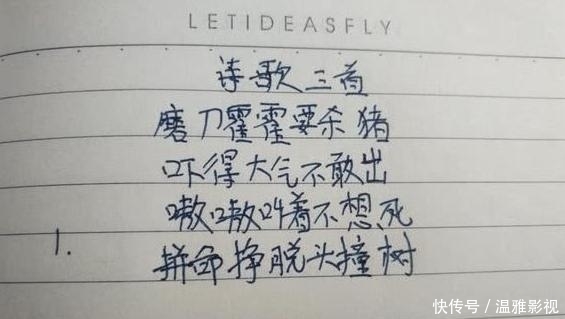 LETIDEASFLY
诗歌三首
磨刀霍霍要杀猪
吓得大气不敢出
嗷嗷叫着不想死
1.
拼命挣脱头撞树
快传号/温雅影视